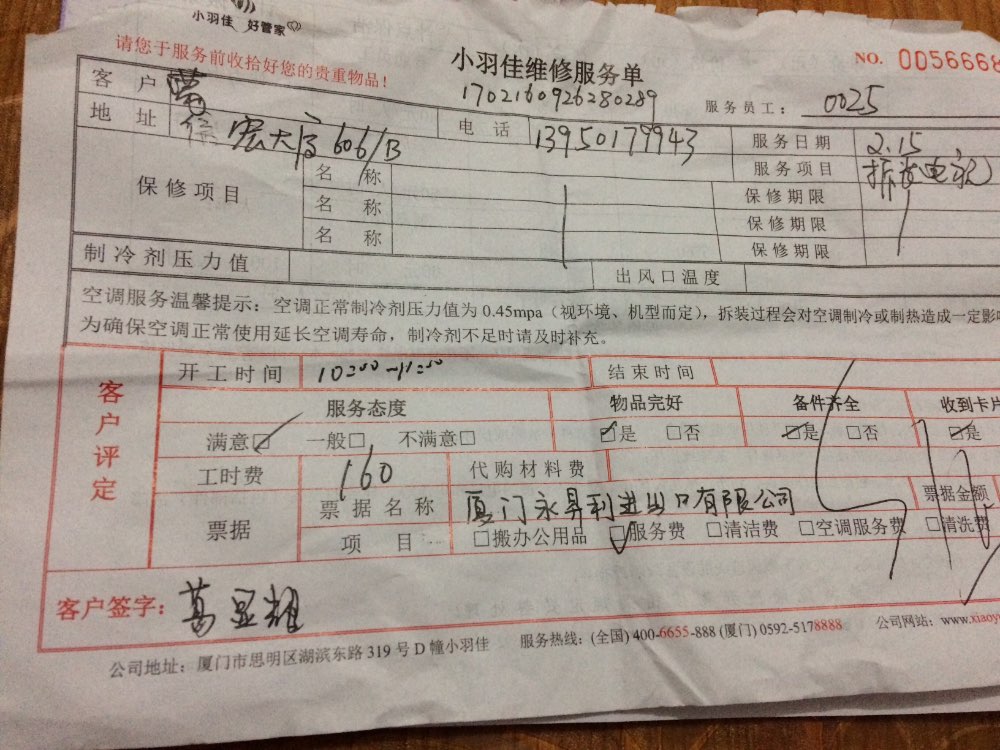 小羽佳 好管家
请您于服务前收拾好您的贵重物品！
小羽佳维修服务单
NO. 0056668
1702160926280289
服务员工： 0025
客户
电话 13950179943
服务日期 2.15
地址 宏大 606/B
服务项目 拆装电视
保修项目
名称 保修期限
名称 保修期限
名称 保修期限
制冷剂压力值 出风口温度
空调服务温馨提示：空调正常制冷剂压力值为 0.45mpa（视环境、机型而定），拆装过程会对空调制冷或制热造成一定影
为确保空调正常使用延长空调寿命，制冷剂不足时请及时补充。
客户评定
开工时间 10:00-11:50 结束时间
服务态度 物品完好 备件齐全 收到卡片
满意☑ 一般□ 不满意□ ☑是 □否 ☑是 □否 ☑是
工时费 160 代购材料费
票据 票据名称 厦门永昇利进出口有限公司 票据金额
项目 □搬办公用品 ☑服务费 □清洁费 □空调服务费 □清洗费
客户签字： 葛显耀
公司地址：厦门市思明区湖滨东路 319 号 D 幢小羽佳 服务热线：(全国) 400-6655-888 (厦门) 0592-5178888 公司网站：www.xiaoy